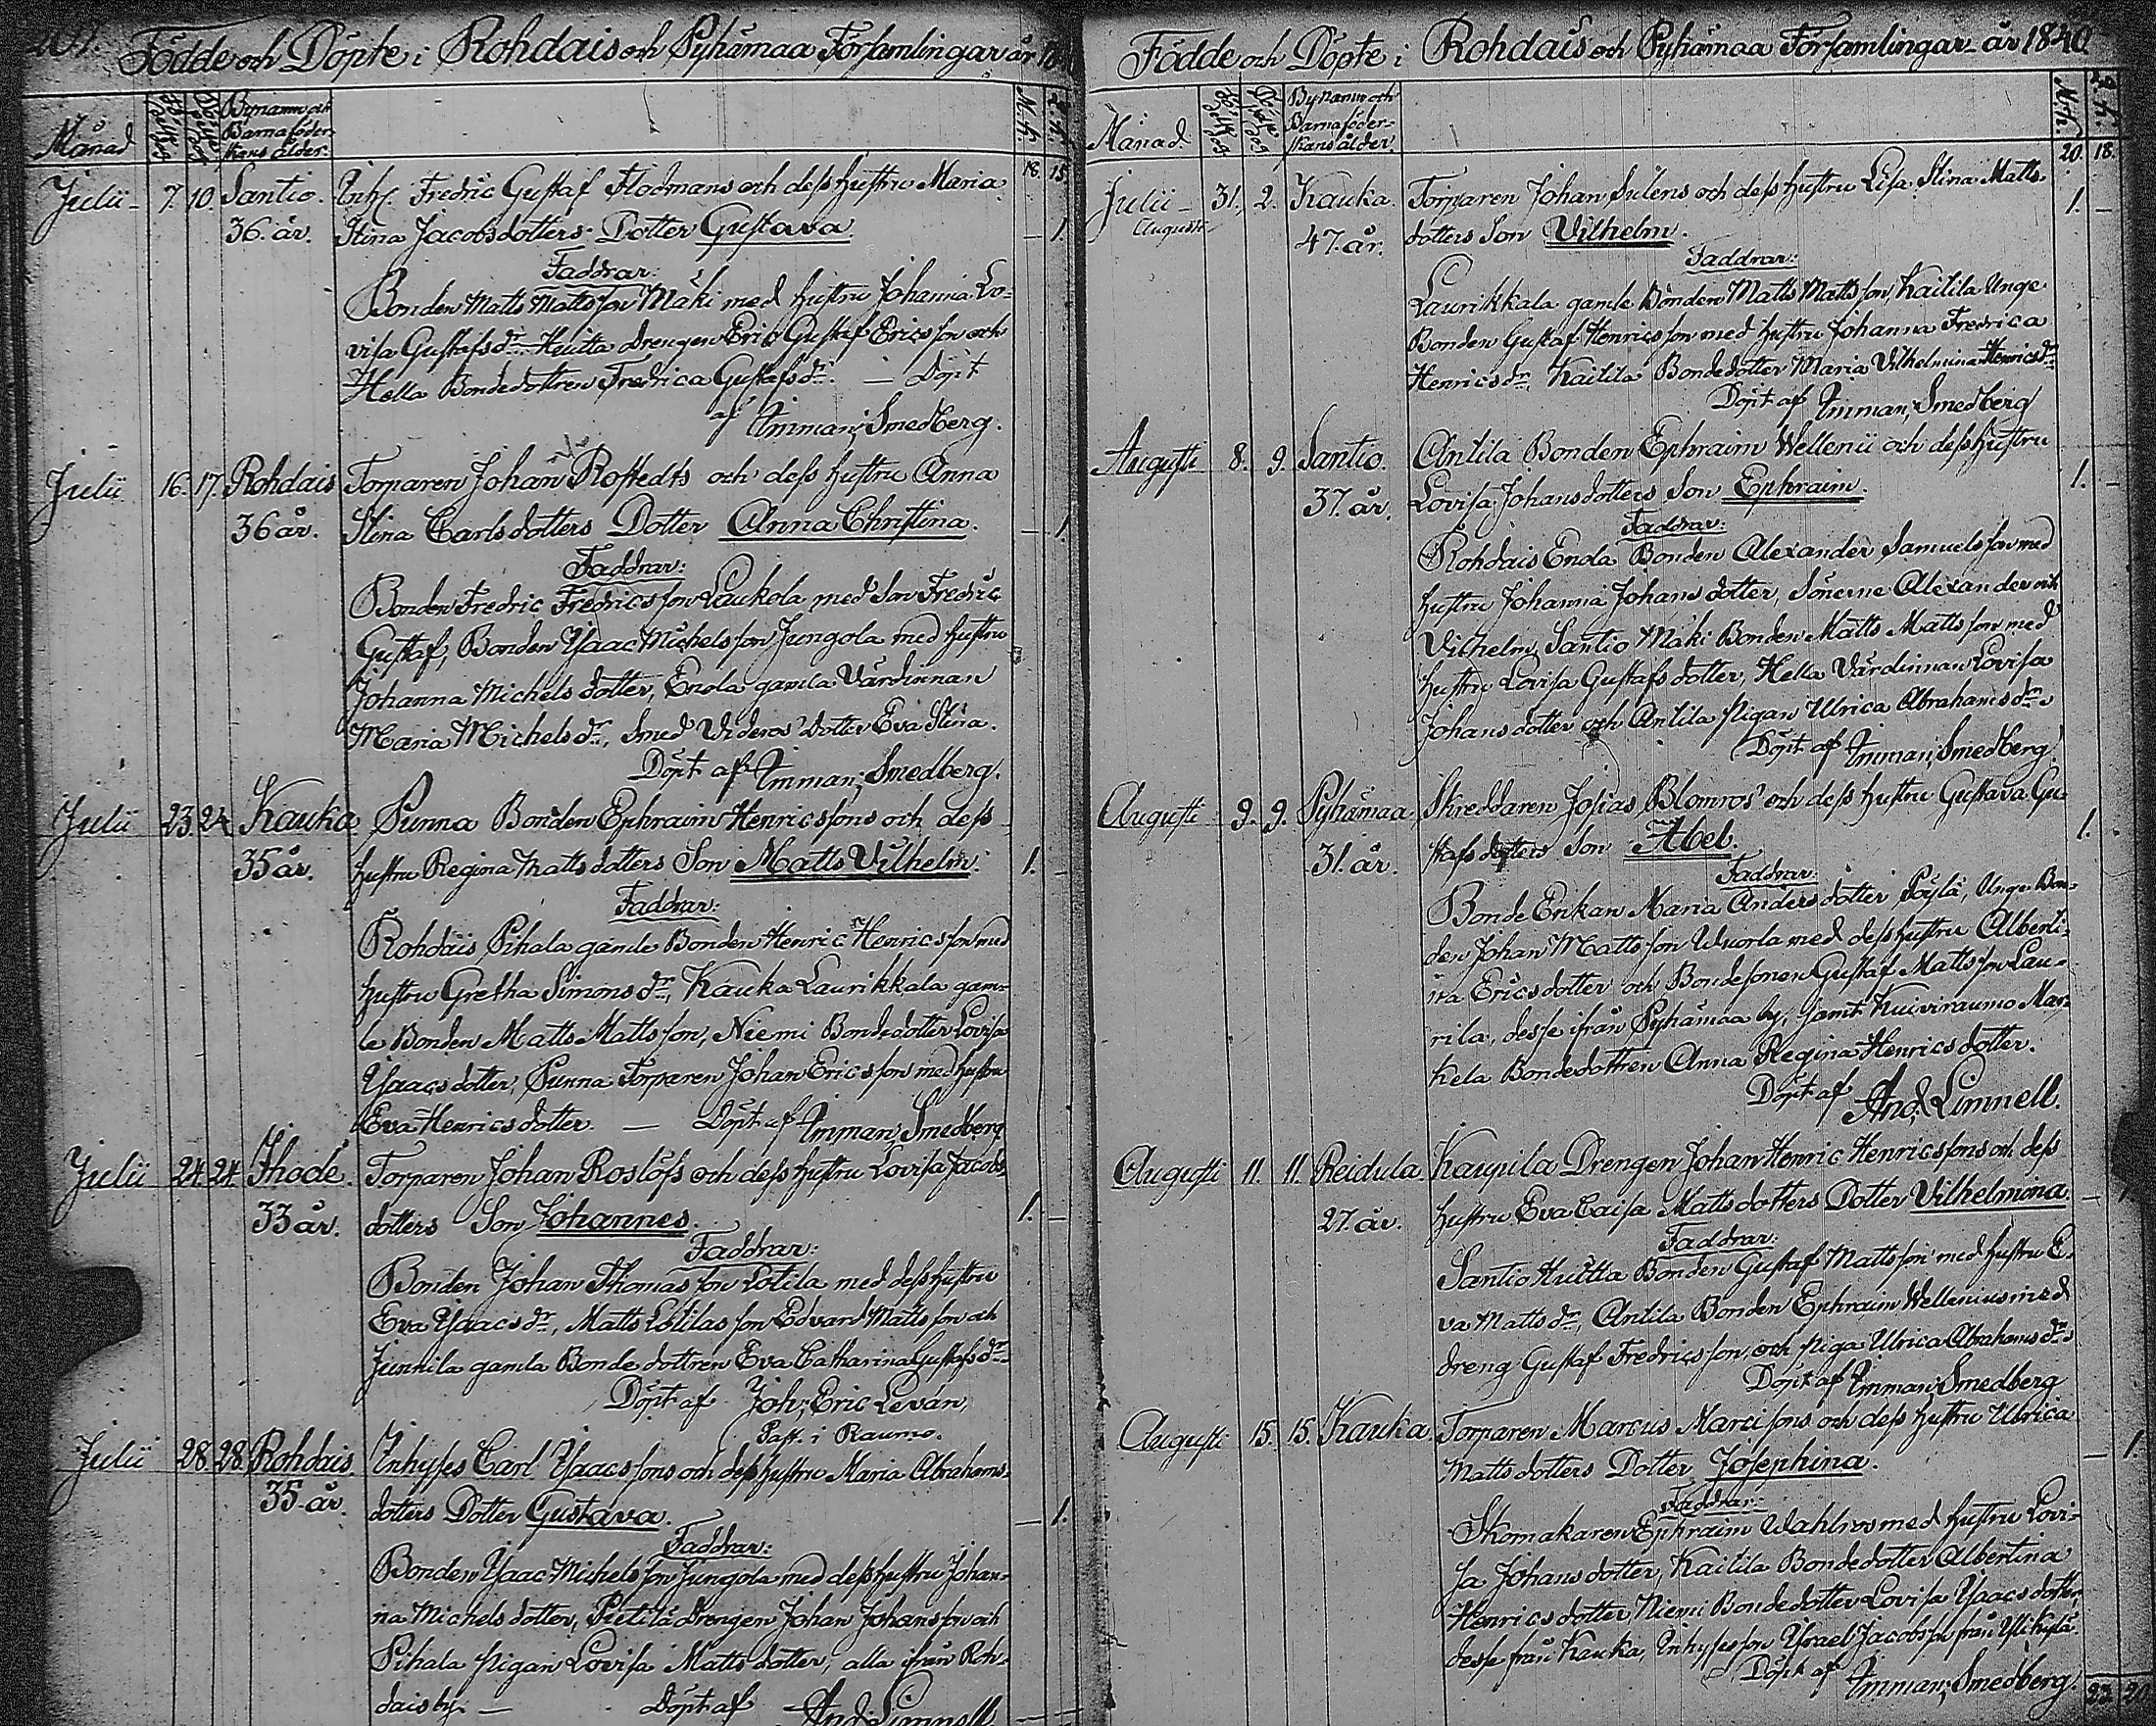 Födde och Döpte i Rohdais och Pyhämaa Församlingar år
Månad
Bynamn och
Barnaföder-
skans ålder.
M.k.
Q.k.
16. 15.
Julii 7. 10. Santio. Inh. Fredric Gustaf Flodmans och dess hustru Maria
36. år. Stina Jacobsdotters Dotter Gustava. — 1.
Faddrar:
Bonden Matts Mattsson Mäki med hustru Johanna Lo-
visa Gustafsdr. Heitta drengen Eric Gustaf Ericsson och
Hella Bondedottren Fredrica Gustafsdr. — Döpt
af Imman; Smedberg.
Julii 16. 17. Rohdais Torparen Johan Rostedts och dess hustru Anna
36 år. Stina Carlsdotters Dotter Anna Christina. — 1.
Faddrar:
Bonden Fredric Fredricsson Laukola med Son Fredric
Gustaf, Bonden Ysaac Michelsson Jungola med hustru
Johanna Michels dotter, Enola gamla Värdinnan
Maria Michelsdr, Smed Videros' Dotter Eva Stina.
Döpt af Imman; Smedberg.
Julii 23. 24. Kauka Sunna Bonden Ephraim Henricssons och dess
35 år. hustru Regina Matts dotters Son Matts Vilhelm. 1. —
Faddrar:
Rohdais Pihala gamle Bonden Henric Henricsson med
hustru Gretha Simonsdr, Kauka Laurikkala gam-
le Bonden Matts Mattsson, Niemi Bondedotter Lovisa
Ysaacsdotter, Sunna Torparen Johan Ericsson med hustru
Eva Henricsdotter. — Döpt af Imman; Smedberg
Julii 24. 24. Ihode. Torparen Johan Roslöfs och dess hustru Lovisa Jacobs
33 år. dotters Son Johannes. 1. —
Faddrar:
Bonden Johan Thomasson Lotila med dess hustru
Eva Ysaacsdr, Matts Lotilas son Edvard Mattsson och
Junnila gamla Bonde dottren Eva Catharina Gustafsdr
Döpt af Joh; Eric Levan,
Past. i Raumo.
Julii 28. 28. Rohdais. Inhyses Carl Ysaacssons och dess hustru Maria Abrahams-
35 år. dotters Dotter Gustava. — 1.
Faddrar:
Bonden Ysaac Michelsson Jungola med dess hustru Johan-
na Michels dotter, Pietilä drengen Johan Johansson och
Pihala pigan Lovisa Matts dotter, alla ifrån Roh-
dais by. — Döpt af And. Limnell.
Födde och Döpte i Rohdais och Pyhämaa Församlingar år 1840
Månad
Bynamn och
Barnaföder-
skans ålder.
M.k.
Q.k.
20. 18.
Julii 31. 2. Kauka. Torparen Johan Suléns och dess hustru Lisa Stina Matts-
Augusti 47. år. dotters Son Vilhelm. 1. —
Faddrar:
Laurikkala gamle Bonden Matts Mattsson, Kailila Unge
Bonden Gustaf Henricsson med hustru Johanna Fredrica
Henricsdr, Kailila Bondedotter Maria Vilhelmina Henricsdr
Döpt af Imman; Smedberg
Augusti 8. 9. Santio. Antila Bonden Ephraim Wellenii och dess hustru
37. år. Lovisa Johansdotters Son Ephraim. 1. —
Faddrar:
Rohdais Enola Bonden Alexander Samuelsson med
hustru Johanna Johans dotter, Sönerne Alexander och
Vilhelm, Santio Mäki Bonden Matts Mattsson med
hustru Lovisa Gustafs dotter, Hella Värdinnan Lovisa
Johans dotter och Antila pigan Ulrica Abrahamsdr
Döpt af Imman; Smedberg.
Augusti 9. 9. Pyhämaa Skreddaren Josias Blomros' och dess hustru Gustava Gu-
31. år. stafsdotters Son Abel. 1.
Faddrar:
Bonde Enkan Maria Anders dotter Pöylä, Unge Bon-
den Johan Mattsson Wuorla med dess hustru Alberti-
na Ericsdotter och Bondesonen Gustaf Mattsson Lau-
rila, desse ifrån Pyhämaa by, samt Kuiviraumo Mar-
kela Bondedottren Anna Regina Henricsdotter.
Döpt af And. Limnell.
Augusti 11. 11. Reidula. Kaupila Drengen Johan Henric Henricssons och dess
27. år. hustru Eva Caisa Mattsdotters Dotter Vilhelmina. — 1.
Faddrar:
Santio Huitta Bonden Gustaf Mattsson med hustru E-
va Mattsdr, Antila Bonden Ephraim Wellenius med
dreng Gustaf Fredricsson, och piga Ulrica Abrahamsdr
Döpt af Imman; Smedberg
Augusti 15. 15. Kauka Torparen Marcus Marcissons och dess hustru Ulrica
Matts dotters Dotter Josephina. — 1.
Faddrar:
Skomakaren Ephraim Wahlros med hustru Lovi-
sa Johans dotter, Kailila Bondedotter Albertina
Henricsdotter, Niemi Bondedotter Lovisa Ysaacsdotter,
desse från Kauka, Inhysesson Ysrael Jacobsson från Ylikylä.
Döpt af Imman; Smedberg.
23. 20